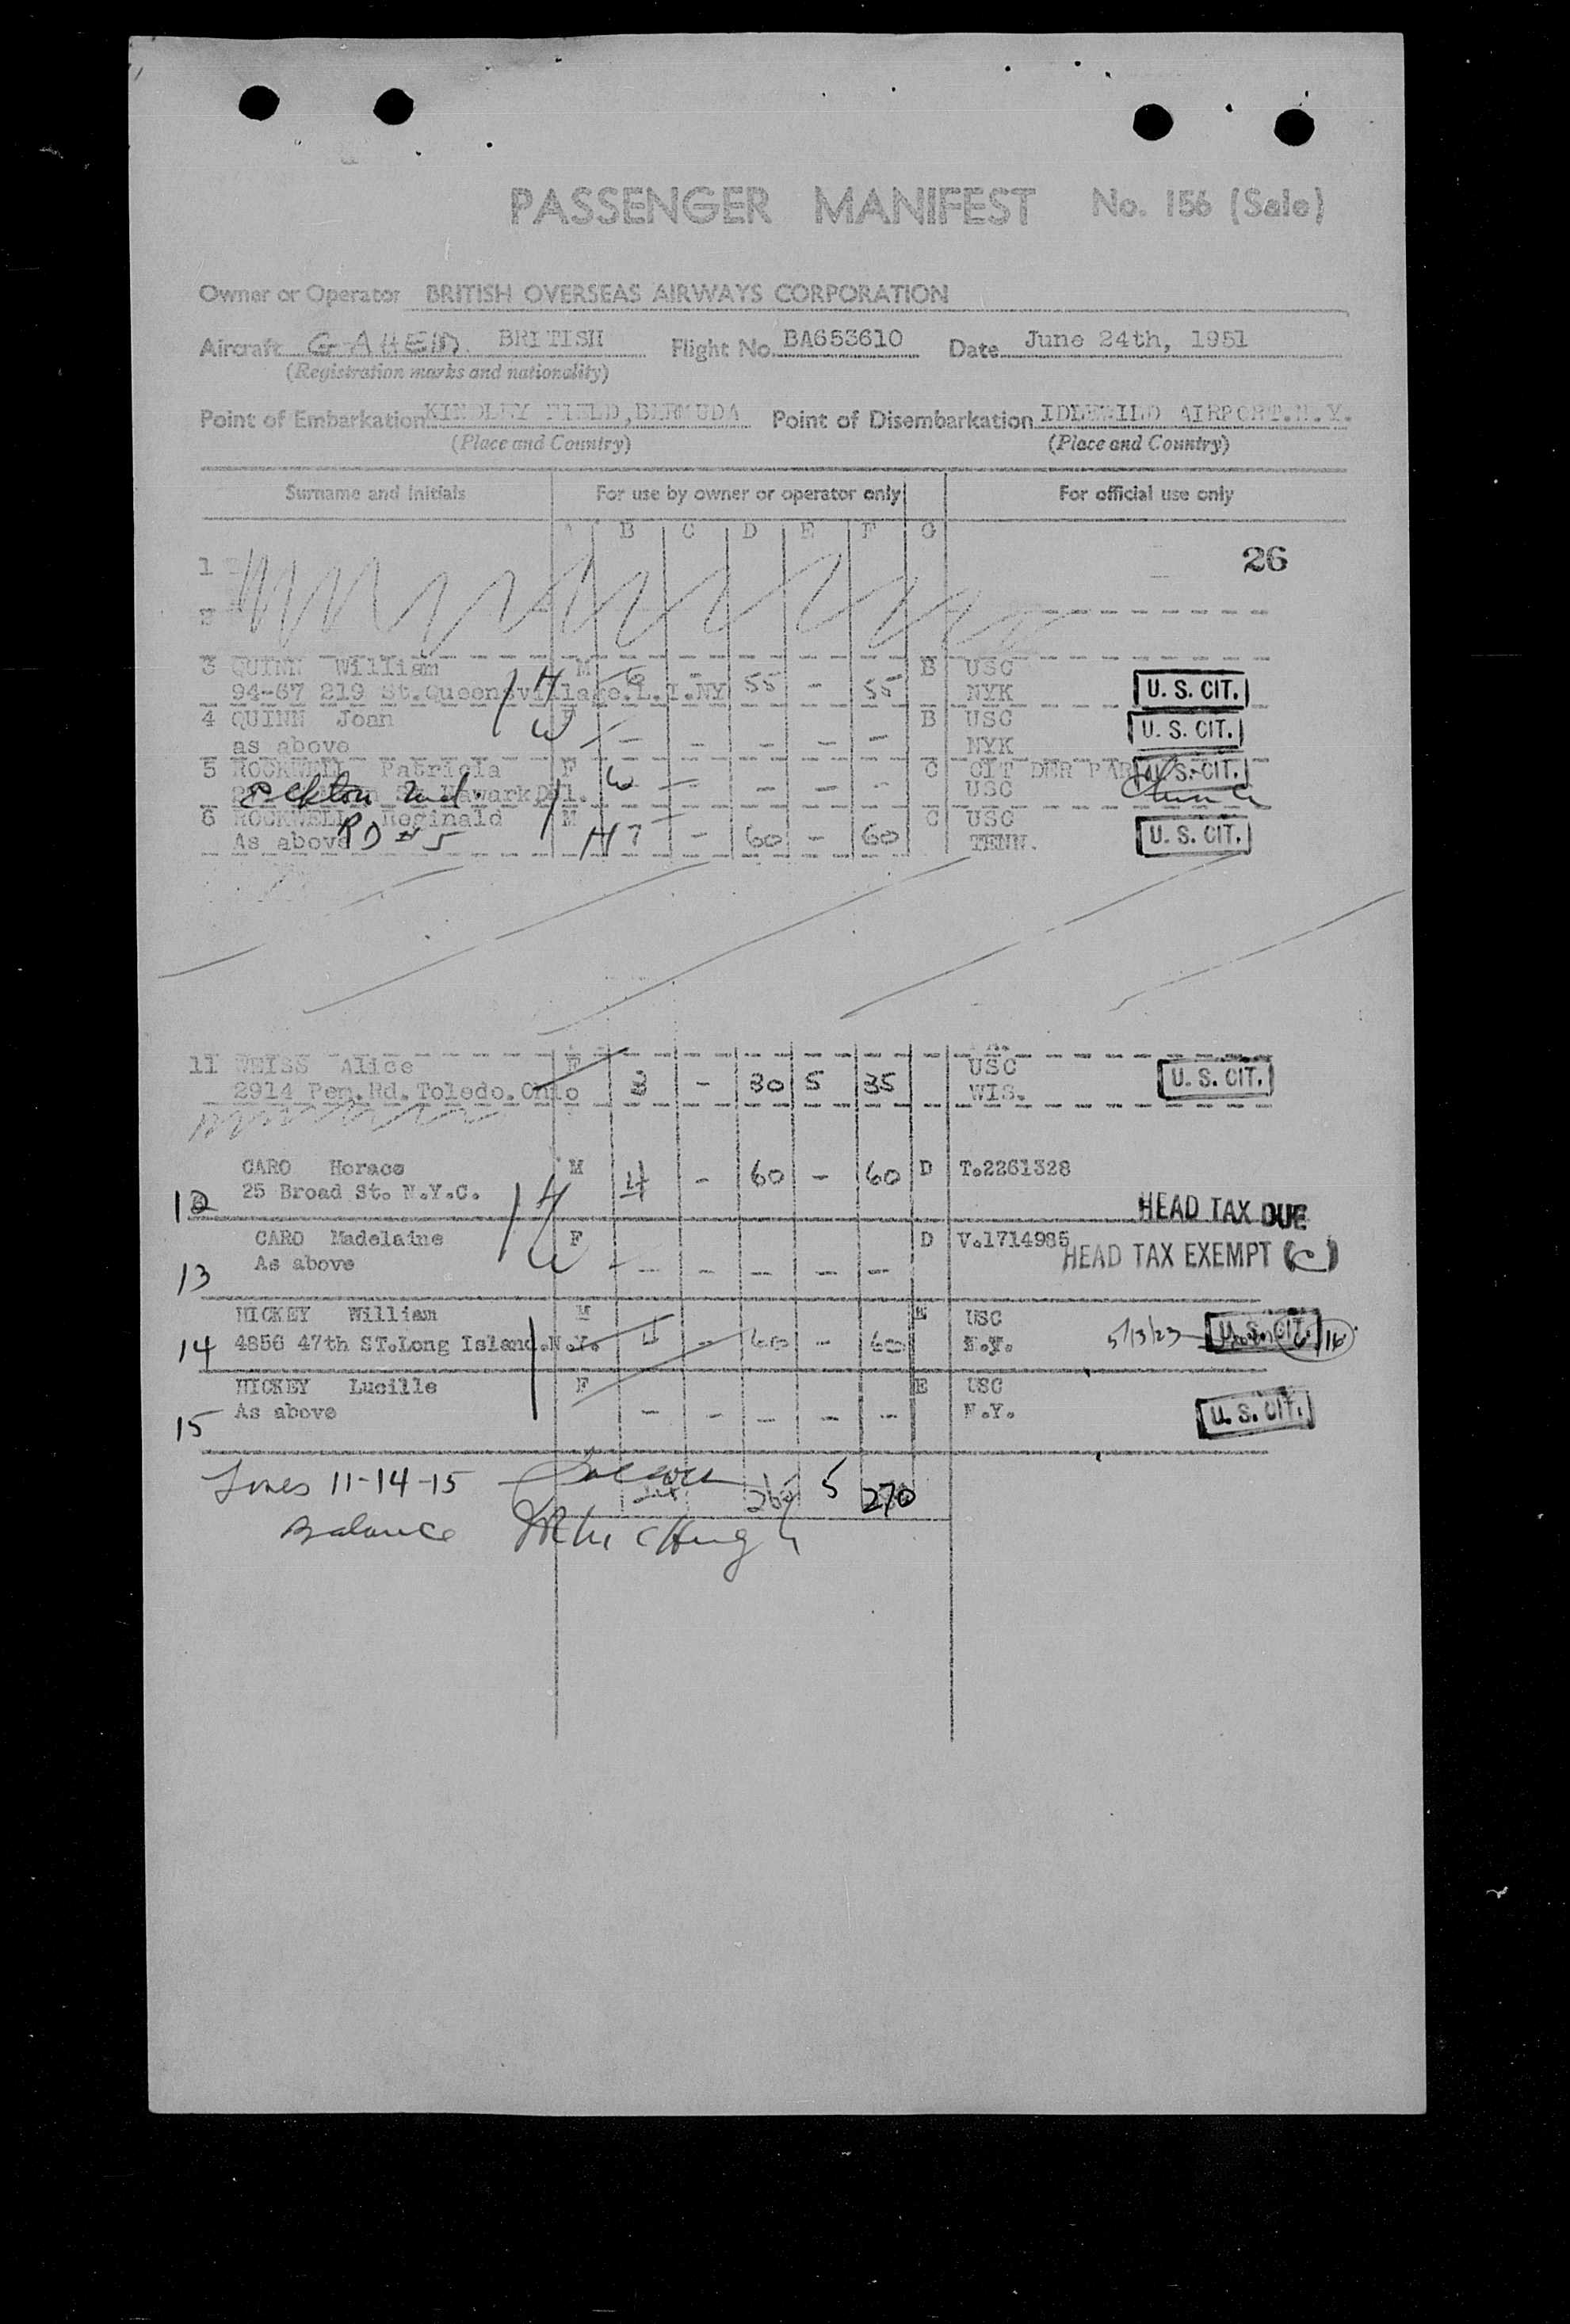 PASSENGER MANIFEST No. 156 (Sale)
Owner or Operator BRITISH OVERSEAS AIRWAYS CORPORATION
Aircraft G-AHEN. BRITISH Flight No. BA653610 Date June 24th, 1951
(Registration marks and nationality)
Point of Embarkation KINDLEY FIELD, BERMUDA Point of Disembarkation IDLEWILD AIRPORT.N.Y.
(Place and Country) (Place and Country)
Surname and Initials For use by owner or operator only For official use only
A B C D E F G
1 26
2
3 QUINN William M 6 - 55 - 55 B USC
94-67 219 St.Queensvillage.L.I.NY NYK U. S. CIT.
4 QUINN Joan F B USC
as above W - - - - - NYK U. S. CIT.
5 ROCKWELL Patricia F W - - - - C CIT DER PAR U. S. CIT.
Elkton Md. Newark Del. USC
6 ROCKWELL Reginald M C USC
As above RD #5 H 7 - 60 - 60 TENN. U. S. CIT.
11 WEISS Alice F USC
2914 Pem.Rd.Toledo.Ohio 3 - 30 5 35 WIS. U. S. CIT.
CARO Horace M 4 - 60 - 60 D T.2261328
12 25 Broad St. N.Y.C. H HEAD TAX DUE
CARO Madelaine F D V.1714985
13 As above W - - - - - HEAD TAX EXEMPT (C)
HICKEY William M E USC
14 4856 47th ST.Long Island.N.Y. 4 - 60 - 60 N.Y. 5/13/23 U. S. CIT. 16
HICKEY Lucille F E USC
15 As above - - - - - N.Y. U. S. CIT.
Lines 11-14-15 24 265 5 270
Balance